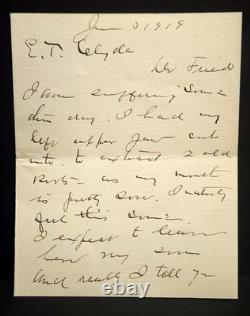 Jun 3 1919
E. T. Clyde
Dr Friend
I am suffering some
this day. I had my
left upper jaw cut
into to extract 2 old
Roots - as my mouth
is pretty sore. I naturly
feel this some.
I expect to leave
here my son
and really I told you
ebay